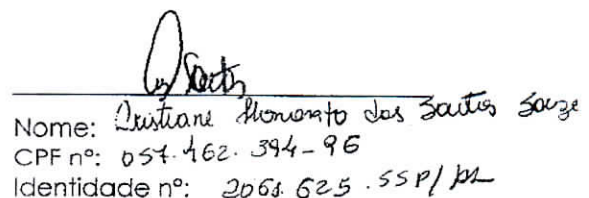 Nome: Cristiane Honorato dos Santos Souze
CPF nº: 057.462.394-96
Identidade nº: 2061.625.SSP/